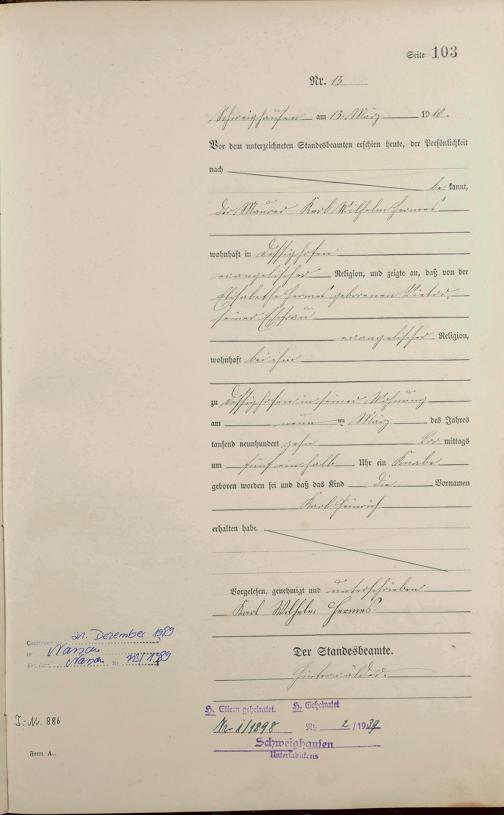 Seite 103
Nr. 13
Schweighausen am 13. März 1910.
Vor dem unterzeichneten Standesbeamten erschien heute, der Persönlichkeit
nach
be kannt,
der Maurer Karl Wilhelm Hermes
wohnhaft in Dessighofen
evangelischer Religion, und zeigte an, daß von der
Elisabethe Hermes geborenen
seiner Ehefrau
evangelischer Religion,
wohnhaft bei ihm
zu Dessighofen in seiner Wohnung
am neun ten März des Jahres
tausend neunhundert zehn Vor mittags
um fünf einhalb Uhr ein Knabe
geboren worden sei und daß das Kind die Vornamen
Karl Heinrich
erhalten habe.
Vorgelesen, genehmigt und unterschrieben
Karl Wilhelm Hermes
Der Standesbeamte.
21. Dezember 1989
in Nassau
Nassau Nr.
J.-Nr. 886
Form. A.
H. Eltern geheiratet. H. Geheiratet
Nr. 1/1898 Nr. 2/1939
Schweighausen
Unterlahnkreis